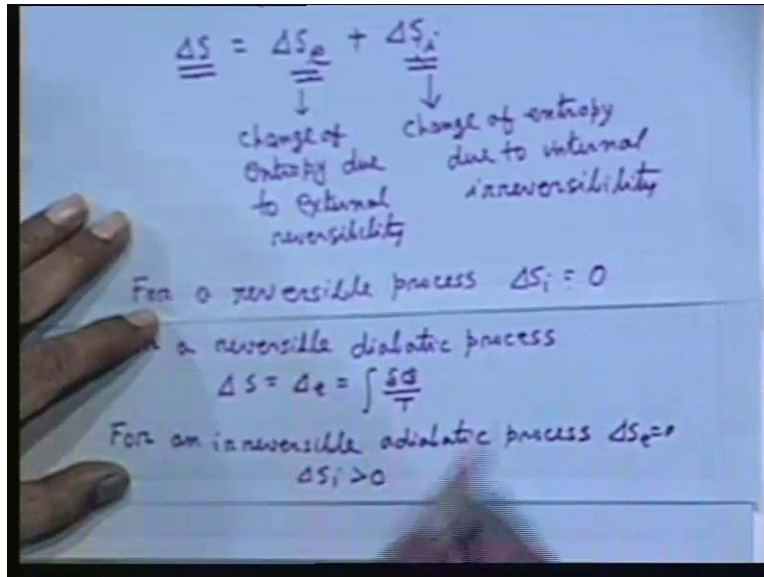 ΔS = ΔSe + ΔSi
↓ ↓
change of entropy due to external reversibility
change of entropy due to internal irreversibility
For a reversible process ΔSi = 0
a reversible diabatic process
ΔS = Δe = ∫ δQ/T
For an irreversible adiabatic process ΔSe=0
ΔSi > 0